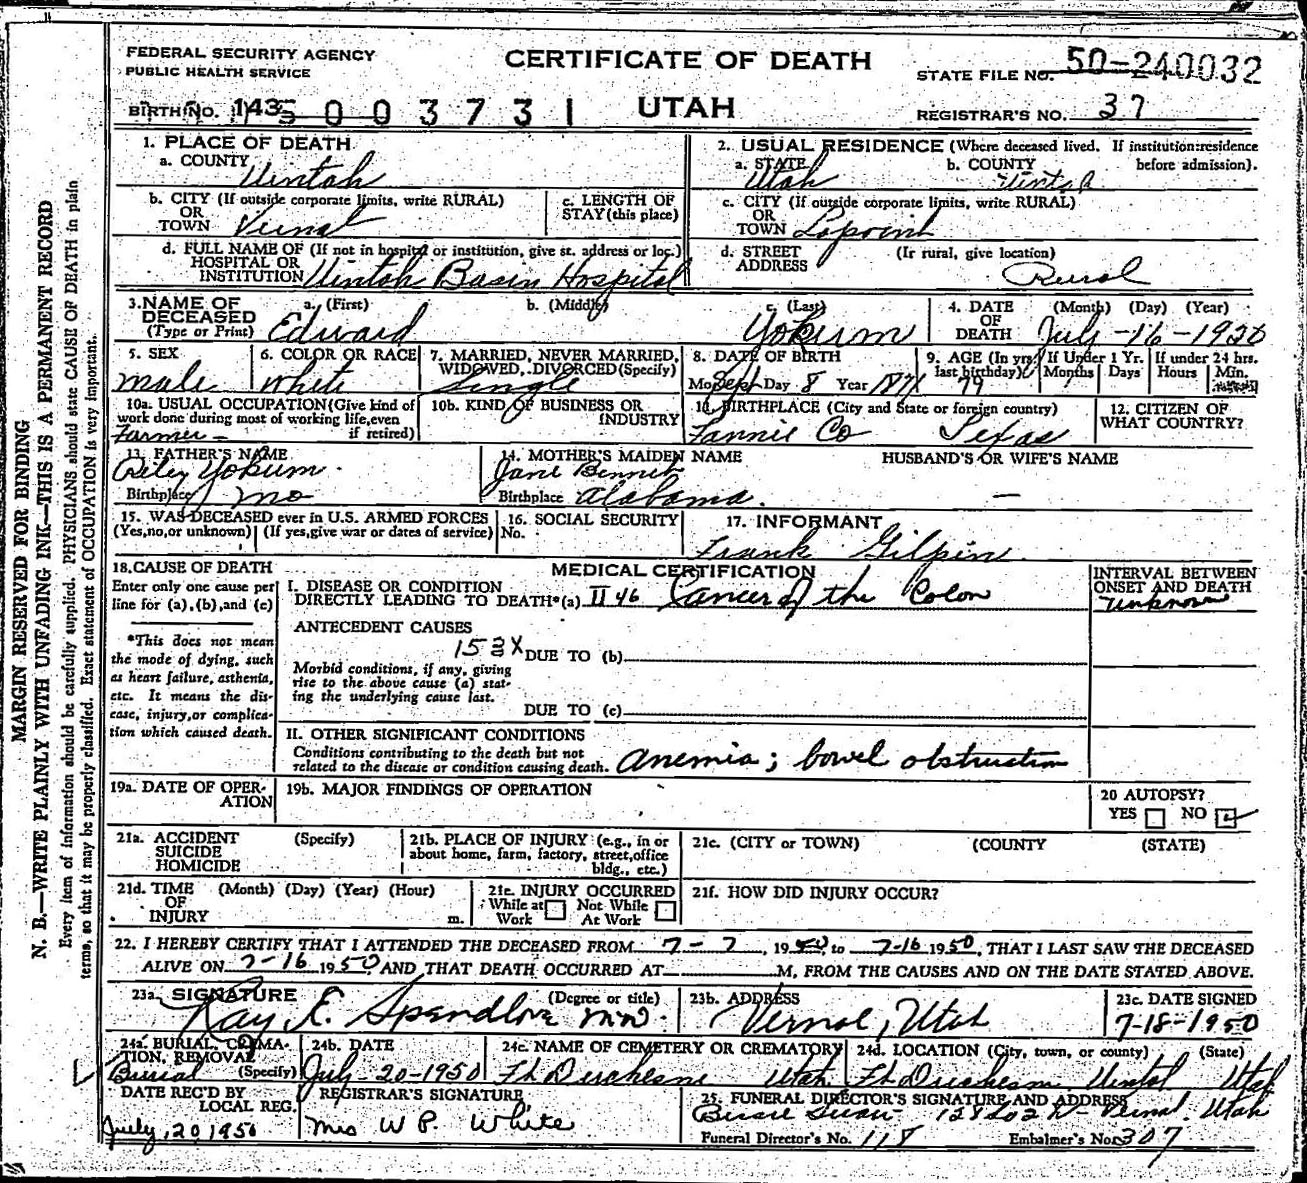 FEDERAL SECURITY AGENCY
PUBLIC HEALTH SERVICE
CERTIFICATE OF DEATH
STATE FILE NO. 50-240032
BIRTH NO. 143 5 0 0 3 7 3 1
UTAH
REGISTRAR'S NO. 37
MARGIN RESERVED FOR BINDING
N. B.—WRITE PLAINLY WITH UNFADING INK—THIS IS A PERMANENT RECORD
Every item of information should be carefully supplied. PHYSICIANS should state CAUSE OF DEATH in plain
terms, so that it may be properly classified. Exact statement of OCCUPATION is very important.
1. PLACE OF DEATH
a. COUNTY Uintah
2. USUAL RESIDENCE (Where deceased lived. If institution: residence
before admission).
a. STATE Utah b. COUNTY Uintah
b. CITY (If outside corporate limits, write RURAL)
OR
TOWN Vernal
c. LENGTH OF
STAY (this place)
c. CITY (If outside corporate limits, write RURAL)
OR
TOWN Lapoint
d. FULL NAME OF (If not in hospital or institution, give st. address or loc.)
HOSPITAL OR
INSTITUTION Uintah Basin Hospital
d. STREET (If rural, give location)
ADDRESS Rural
3. NAME OF DECEASED
(Type or Print)
a. (First) b. (Middle) c. (Last)
Edward Yokum
4. DATE OF DEATH
(Month) (Day) (Year)
July-16-1950
5. SEX
male
6. COLOR OR RACE
White
7. MARRIED, NEVER MARRIED,
WIDOWED, DIVORCED (Specify)
Single
8. DATE OF BIRTH
Mo. Sept Day 8 Year 1871
9. AGE (In yrs. last birthday)
79
If Under 1 Yr.
Months Days
If under 24 hrs.
Hours Min.
10a. USUAL OCCUPATION (Give kind of
work done during most of working life, even
if retired)
Farmer-
10b. KIND OF BUSINESS OR
INDUSTRY
11. BIRTHPLACE (City and State or foreign country)
Fannie Co Texas
12. CITIZEN OF
WHAT COUNTRY?
13. FATHER'S NAME
Riley Yokum
Birthplace Mo
14. MOTHER'S MAIDEN NAME
Jane Bennett
Birthplace Alabama.
HUSBAND'S OR WIFE'S NAME
—
15. WAS DECEASED ever in U.S. ARMED FORCES
(Yes, no, or unknown) (If yes, give war or dates of service)
16. SOCIAL SECURITY
No.
17. INFORMANT
Frank Gilpin
18. CAUSE OF DEATH
Enter only one cause per
line for (a), (b), and (c)
*This does not mean
the mode of dying, such
as heart failure, asthenia,
etc. It means the dis-
ease, injury, or complica-
tion which caused death.
MEDICAL CERTIFICATION
I. DISEASE OR CONDITION
DIRECTLY LEADING TO DEATH*(a) II 46 Cancer of the Colon
INTERVAL BETWEEN
ONSET AND DEATH
Unknown
ANTECEDENT CAUSES
153X DUE TO (b)
Morbid conditions, if any, giving
rise to the above cause (a) stat-
ing the underlying cause last.
DUE TO (c)
II. OTHER SIGNIFICANT CONDITIONS
Conditions contributing to the death but not
related to the disease or condition causing death. Anemia; bowel obstruction
19a. DATE OF OPER-
ATION
19b. MAJOR FINDINGS OF OPERATION
20 AUTOPSY?
YES NO
21a. ACCIDENT
SUICIDE
HOMICIDE
(Specify)
21b. PLACE OF INJURY (e.g., in or
about home, farm, factory, street, office
bldg., etc.)
21c. (CITY or TOWN) (COUNTY (STATE)
21d. TIME OF INJURY
(Month) (Day) (Year) (Hour)
m.
21e. INJURY OCCURRED
While at Work Not While At Work
21f. HOW DID INJURY OCCUR?
22. I HEREBY CERTIFY THAT I ATTENDED THE DECEASED FROM 7-7, 1950, to 7-16 1950, THAT I LAST SAW THE DECEASED
ALIVE ON 7-16 1950 AND THAT DEATH OCCURRED AT M, FROM THE CAUSES AND ON THE DATE STATED ABOVE.
23a. SIGNATURE (Degree or title)
Ray E. Spendlove MD.
23b. ADDRESS
Vernal, Utah
23c. DATE SIGNED
7-18-1950
24a. BURIAL, CREMA-
TION, REMOVAL
(Specify)
Burial
24b. DATE
July 20-1950
24c. NAME OF CEMETERY OR CREMATORY
Ft Duchesne Utah
24d. LOCATION (City, town, or county) (State)
Ft Duchesne Uintah Utah
DATE REC'D BY
LOCAL REG.
July, 20 1950
REGISTRAR'S SIGNATURE
Mrs W P. White
25. FUNERAL DIRECTOR'S SIGNATURE AND ADDRESS
Vernal. Utah
Funeral Director's No. 118 Embalmer's No. 307